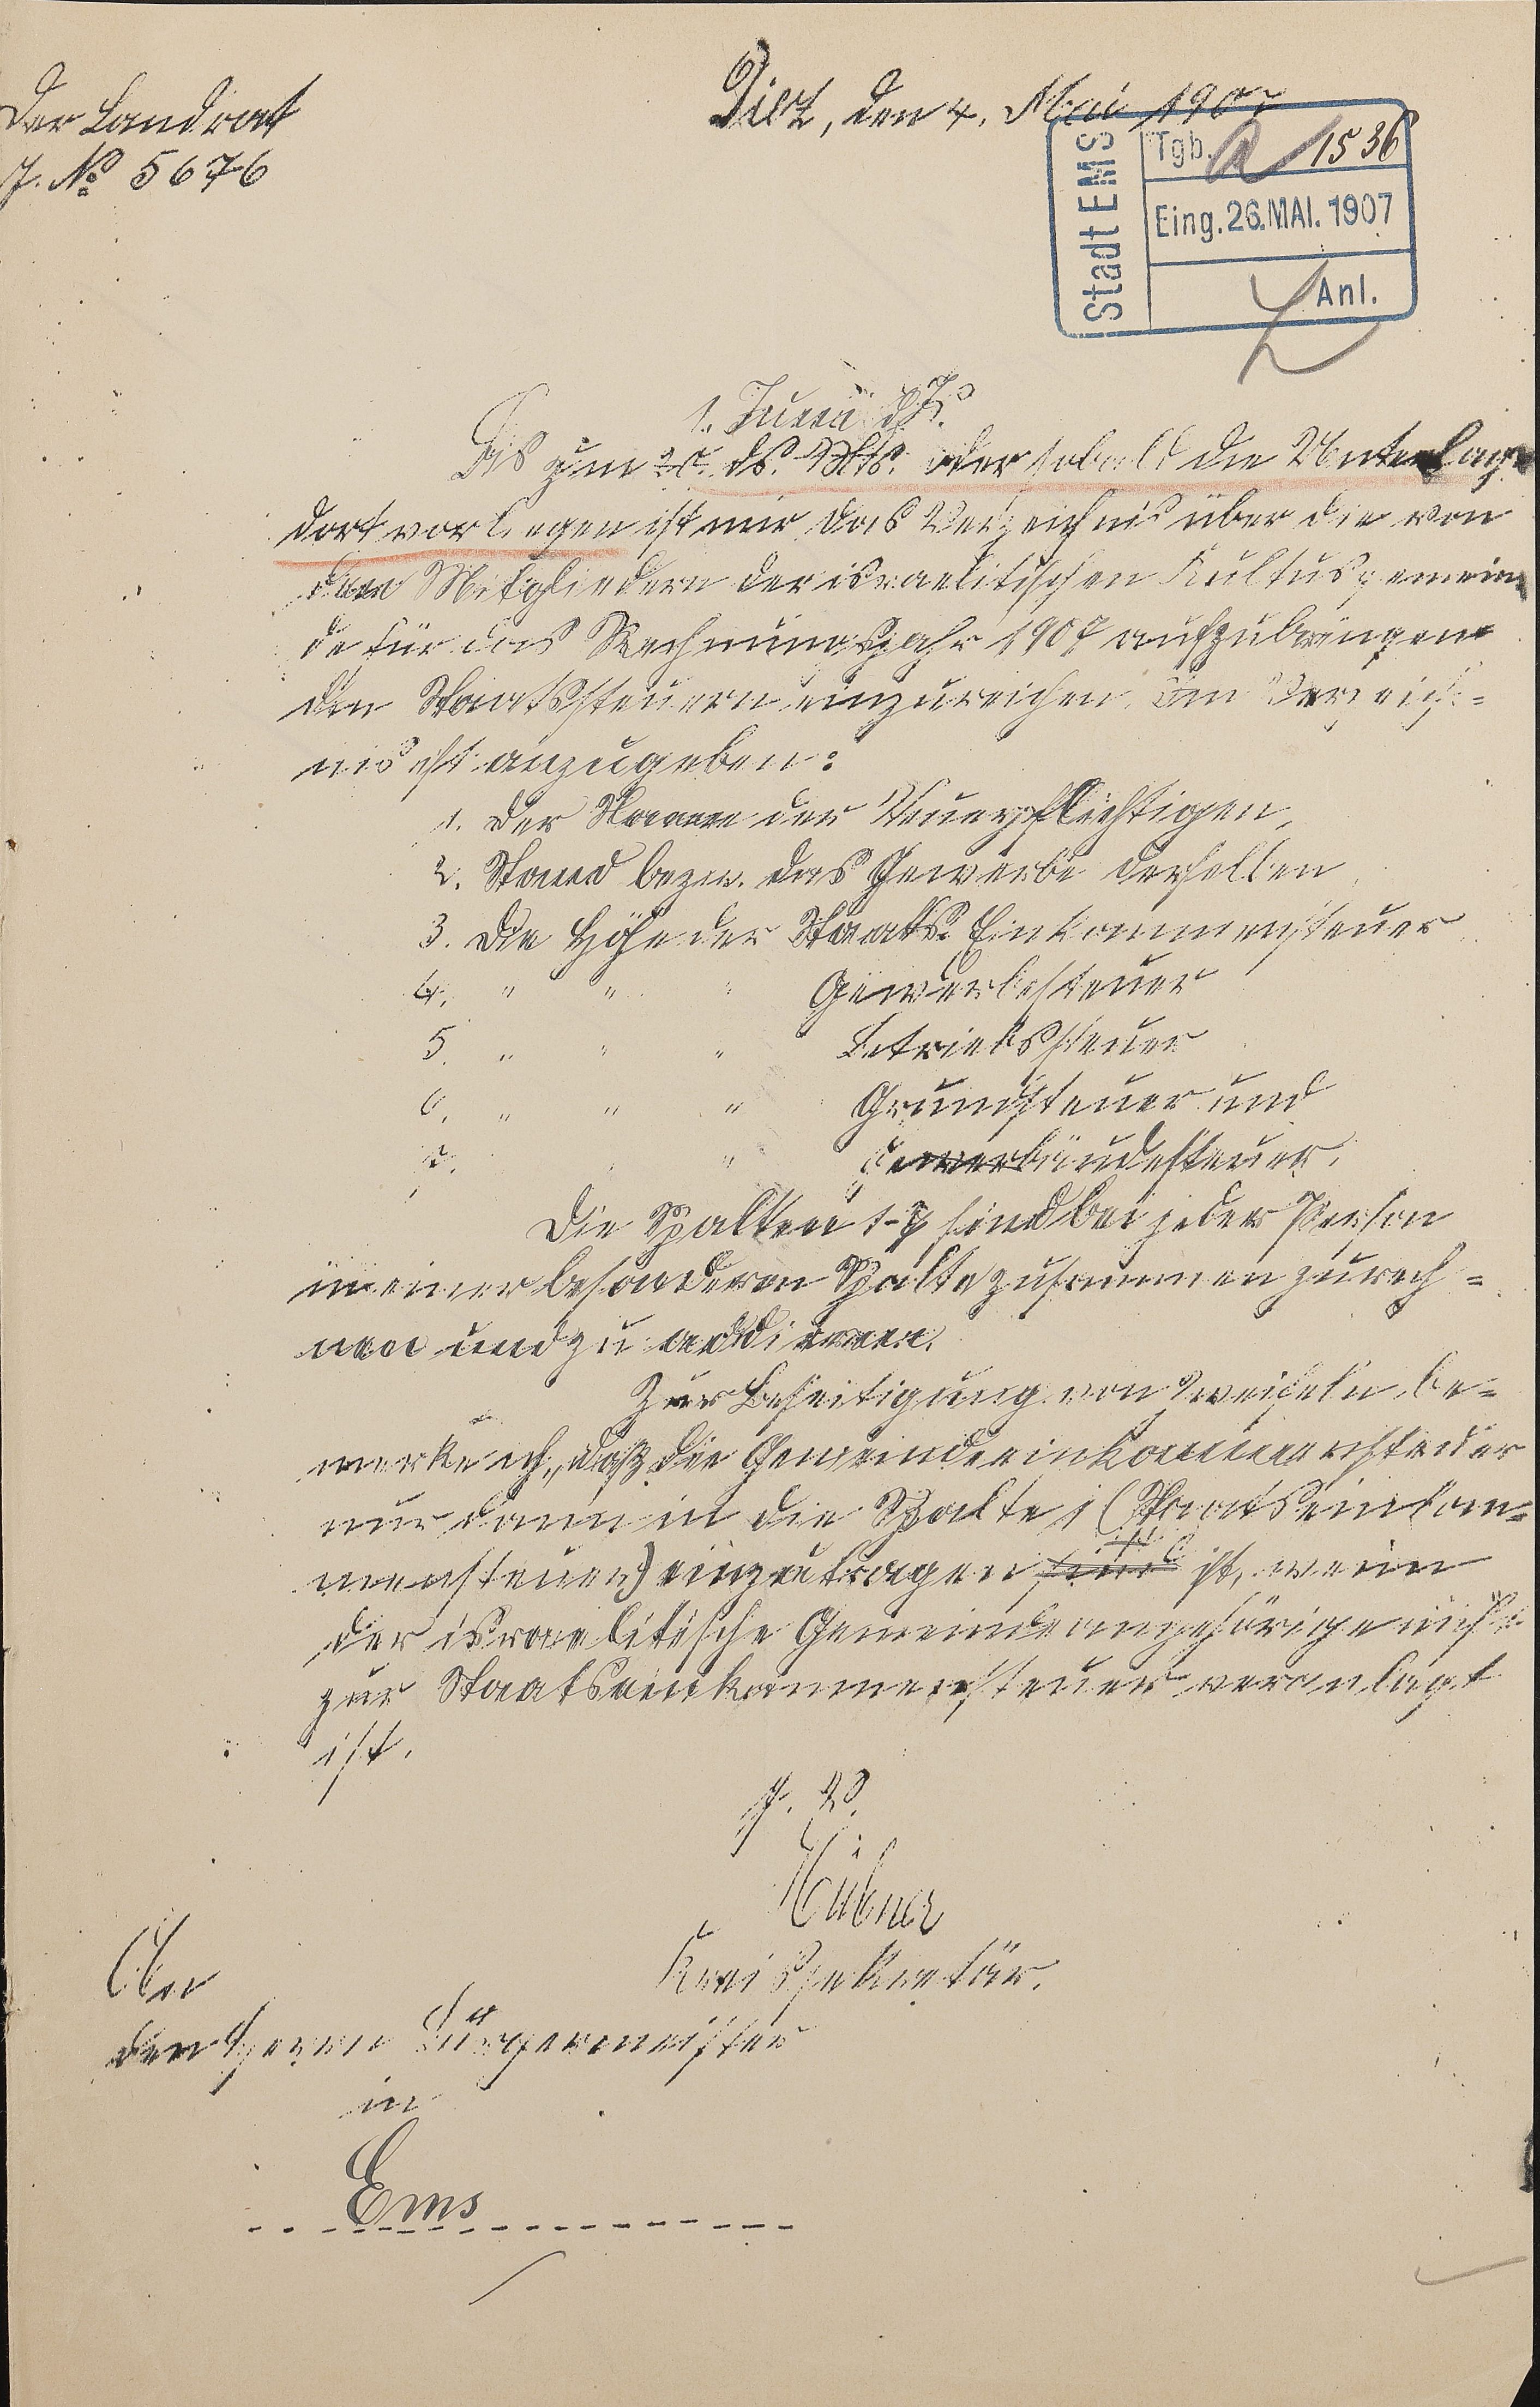 Der Landrat
J. No 5676
Diez, den 4. Mai 1907
Stadt EMS
Tgb. A 1536
Eing. 26. MAI. 1907
Anl.
1. Juni d. Js.
Bis zum 20. ds. Mts. oder sobald die Unterlagen
dort vorliegen ist mir das Verzeichnis über die von
den Mitgliedern der israelitischen Kultusgemein
de für das Rechnungsjahr 1907 aufzubringen
den Staatssteuern einzureichen. Im Verzeich=
nis ist anzugeben:
1. der Name des Steuerpflichtigen,
2. Stand bezw. das Gewerbe desselben
3. Die Höhe der Staats Einkommensteuer
4. " " " Gewerbesteuer
5. " " " Betriebssteuer
6. " " " Grundsteuer und
7. " Gebäudesteuer.
Die Spalten 1-7 sind bei jeder Person
in einer besonderen Spalte zusammen zu rech=
nen und zu addieren.
Zur Beseitigung von Zweifeln be=
merke ich, daß die Gemeindeeinkommensteuer
nur dann in die Spalte 1 (Staatseinkom=
mensteuer) einzutragen sind ist, wenn
der israelitische Gemeindeangehörige nicht
zur Staatseinkommensteuer veranlagt
ist.
J. V.
Hübner
Kreissekretär.
An
den Herrn Bürgermeister
in
Ems